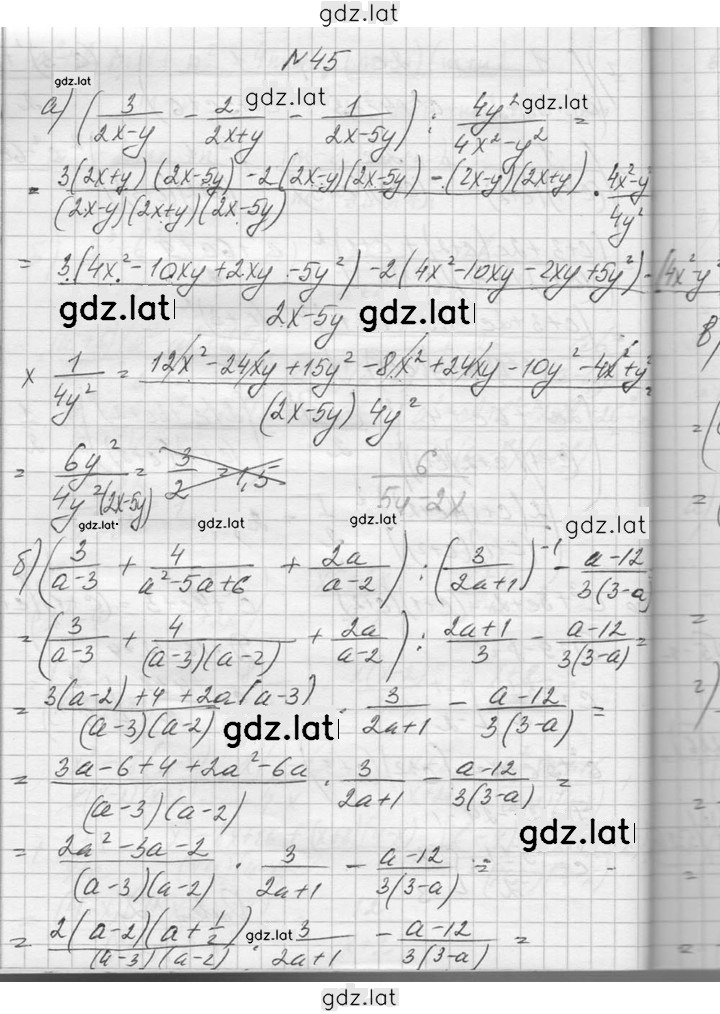 gdz.lat
N45
gdz.lat
а) (3/(2x-y) - 2/(2x+y) - 1/(2x-5y)) : 4y²/(4x²-y²) =
gdz.lat
= (3(2x+y)(2x-5y) - 2(2x-y)(2x-5y) - (2x-y)(2x+y))/((2x-y)(2x+y)(2x-5y)) · (4x²-y²)/4y²
= (3(4x²-10xy+2xy-5y²) - 2(4x²-10xy-2xy+5y²) - (4x²-y²)/(2x-5y)
gdz.lat gdz.lat
× 1/4y² = (12x²-24xy+15y²-8x²+24xy-10y²-4x²+y²)/((2x-5y) 4y²)
= 6y²/(4y²(2x-5y)) = 3/2 = 1,5 6/(5y-2x)
gdz.lat gdz.lat gdz.lat gdz.lat
б) (3/(a-3) + 4/(a²-5a+6) + 2a/(a-2)) : (3/(2a+1))⁻¹ - (a-12)/(3(3-a)
= (3/(a-3) + 4/((a-3)(a-2)) + 2a/(a-2)) : (2a+1)/3 - (a-12)/(3(3-a)) =
= (3(a-2)+4+2a(a-3))/((a-3)(a-2)) · 3/(2a+1) - (a-12)/(3(3-a)) =
gdz.lat
= (3a-6+4+2a²-6a)/((a-3)(a-2)) · 3/(2a+1) - (a-12)/(3(3-a)) =
gdz.lat
= (2a²-3a-2)/((a-3)(a-2)) · 3/(2a+1) - (a-12)/(3(3-a)) =
= (2(a-2)(a+1/2))/((a-3)(a-2)) · 3/(2a+1) - (a-12)/(3(3-a)) =
gdz.lat
gdz.lat